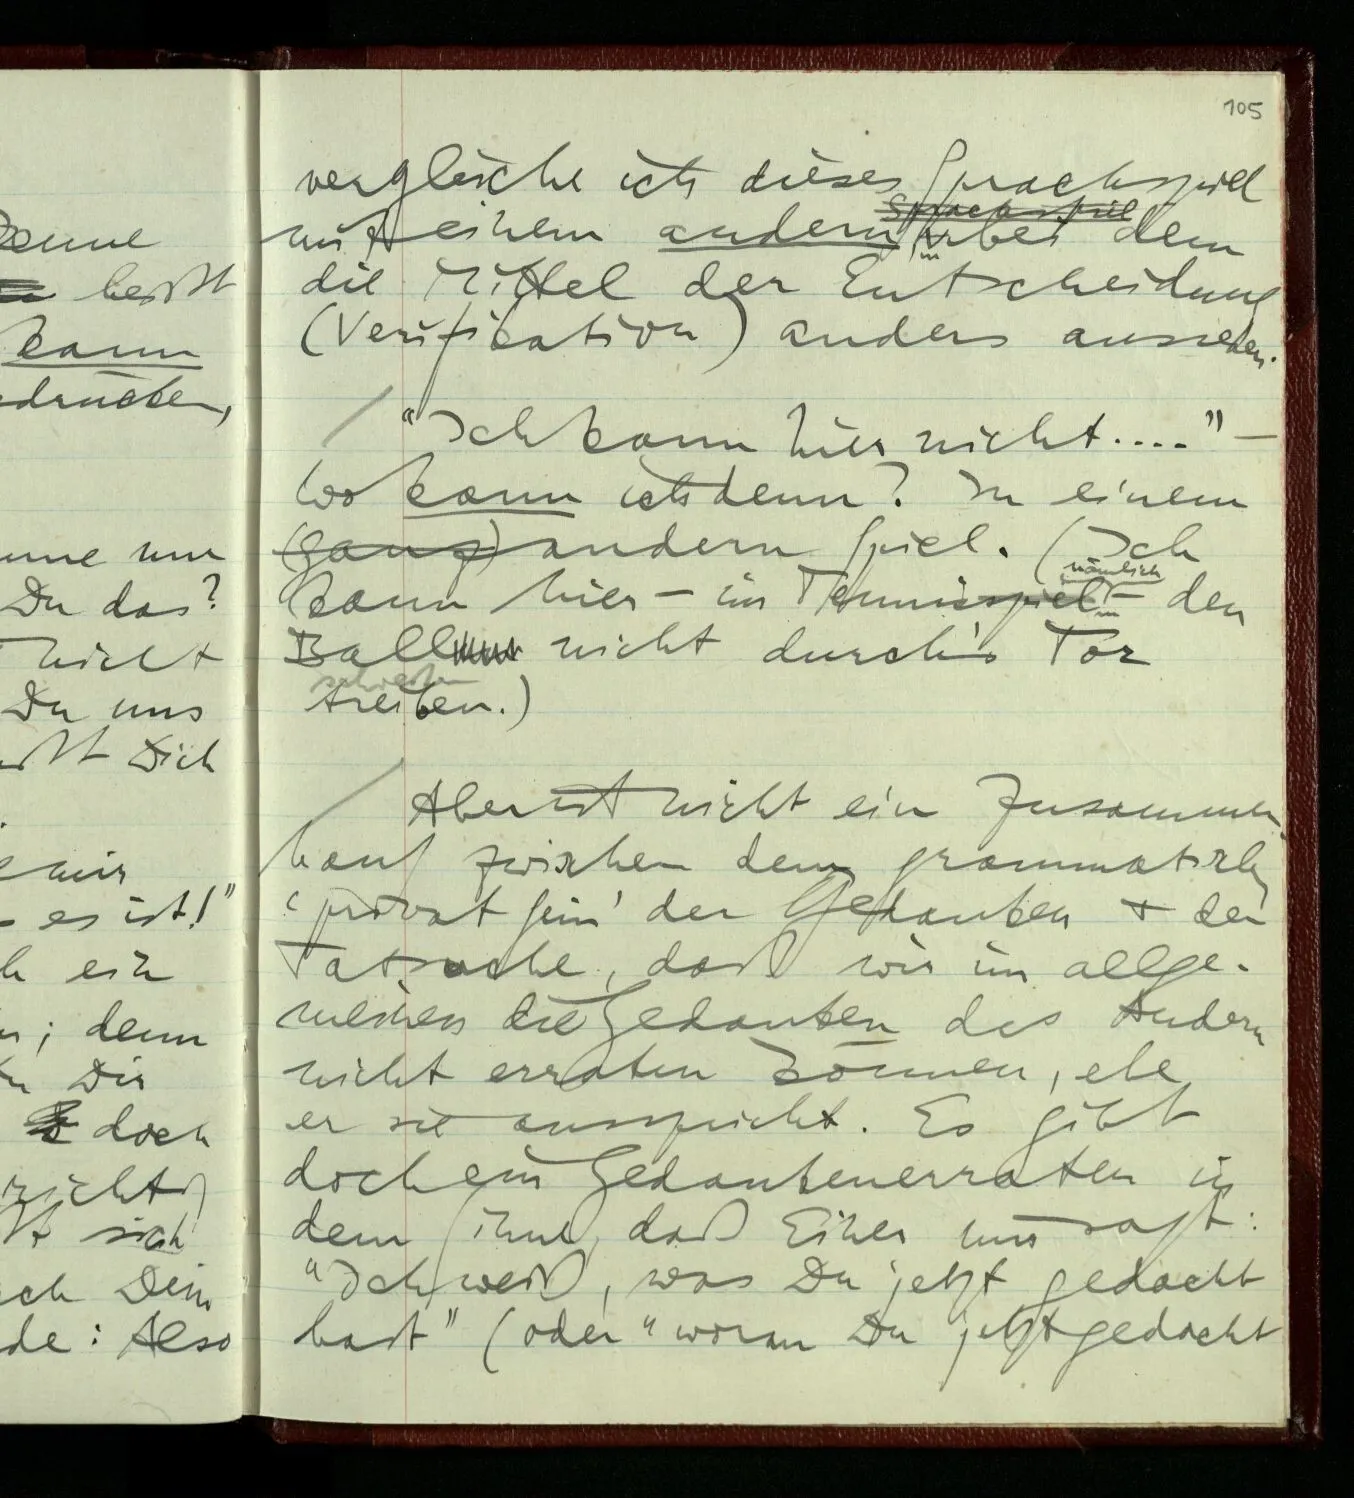 105
vergleiche ich dieses Sprachspiel
mit einem andern Sprachspiel, bei dem
die Mittel der Entscheidung
(Verification) anders aussehen.
"Ich kann hier nicht...." –
Wo kann ich denn? In einem
(ganz) andern Spiel. (Ich
kann hier – nämlich im Tennisspiel – den
Ball nicht durch's Tor
schießen
treiben.)
Aber ist nicht ein Zusammen-
hang zwischen dem grammatischen
'privat sein' der Gedanken & der
Tatsache, daß wir im allge-
meinen die Gedanken des Andern
nicht erraten können, ehe
er sie ausspricht. Es gibt
doch ein Gedankenerraten in
dem Sinne, daß Einer mir sagt:
"Ich weiß, was Du jetzt gedacht
hast" (oder "woran Du jetzt gedacht
heißt
kann
drücken,
nur
Du das?
nicht
Du uns
Dich
mir
es ist!"
ein
; denn
Dir
doch
sich
Dein
de: Also